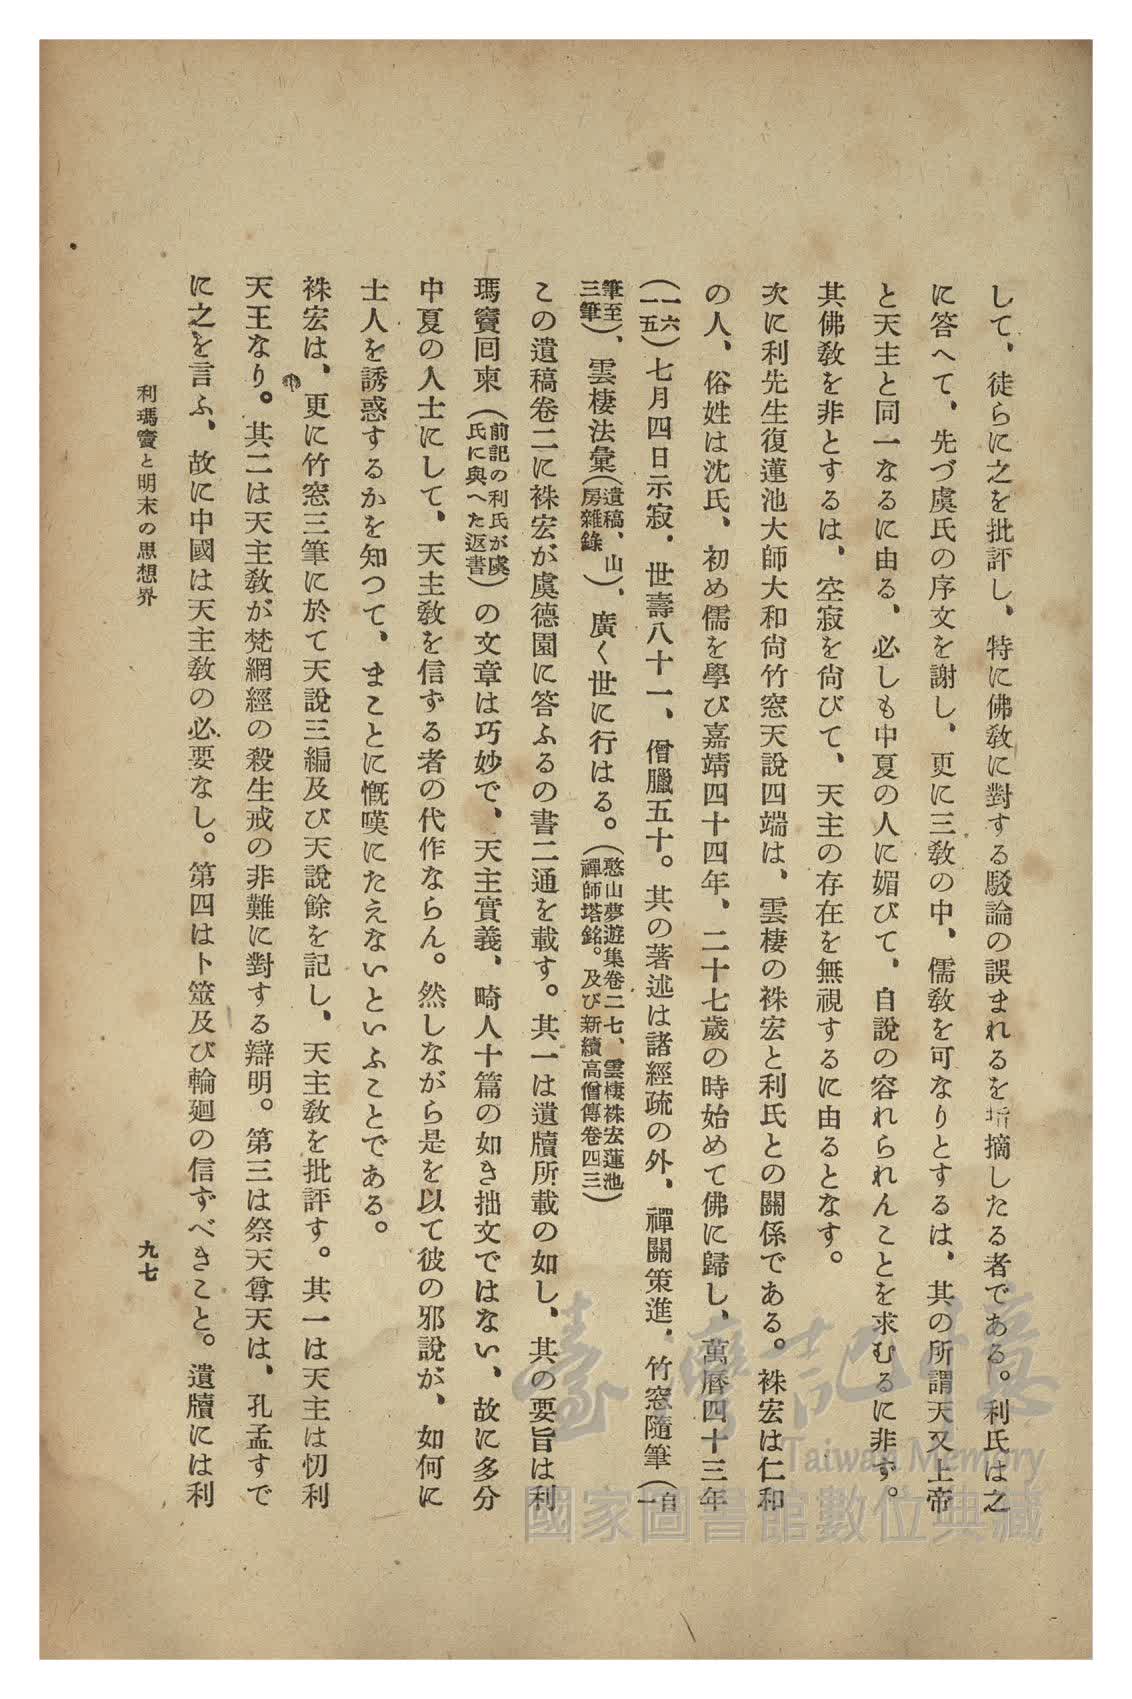 して、徒らに之を批評し、特に佛敎に對する駁論の誤まれるを指摘したる者である。利氏は之
に答へて、先づ虞氏の序文を謝し、更に三敎の中、儒敎を可なりとするは、其の所謂天又上帝
と天主と同一なるに由る、必しも中夏の人に媚びて、自說の容れられんことを求むるに非ず。
其佛敎を非とするは、空寂を尙びて、天主の存在を無視するに由るとなす。
次に利先生復蓮池大師大和尙竹窓天說四端は、雲棲の袾宏と利氏との關係である。袾宏は仁和
の人、俗姓は沈氏、初め儒を學び嘉靖四十四年、二十七歲の時始めて佛に歸し、萬曆四十三年
(一六一五)七月四日示寂、世壽八十一、僧臘五十。其の著述は諸經疏の外、禪關策進、竹窓隨筆(自一
筆至三筆)、雲棲法彙(遺稿、山房雜錄)、廣く世に行はる。(憨山夢遊集卷二七、雲棲袾宏蓮池禪師塔銘。及び新續高僧傳卷四三)
この遺稿卷二に袾宏が虞德園に答ふるの書二通を載す。其一は遺牘所載の如し、其の要旨は利
瑪竇回柬(前記の利氏が虞氏に與へた返書)の文章は巧妙で、天主實義、畸人十篇の如き拙文ではない、故に多分
中夏の人士にして、天主敎を信ずる者の代作ならん。然しながら是を以て彼の邪說が、如何に
士人を誘惑するかを知つて、まことに慨嘆にたえないといふことである。
袾宏は、更に竹窓三筆に於て天說三編及び天說餘を記し、天主敎を批評す。其一は天主は忉利
天王なり。其二は天主敎が梵網經の殺生戒の非難に對する辯明。第三は祭天尊天は、孔孟すで
に之を言ふ、故に中國は天主敎の必要なし。第四は卜筮及び輪廻の信ずべきこと。遺牘には利
利瑪竇と明末の思想界
九七
臺灣記憶
Taiwan Memory
國家圖書館數位典藏